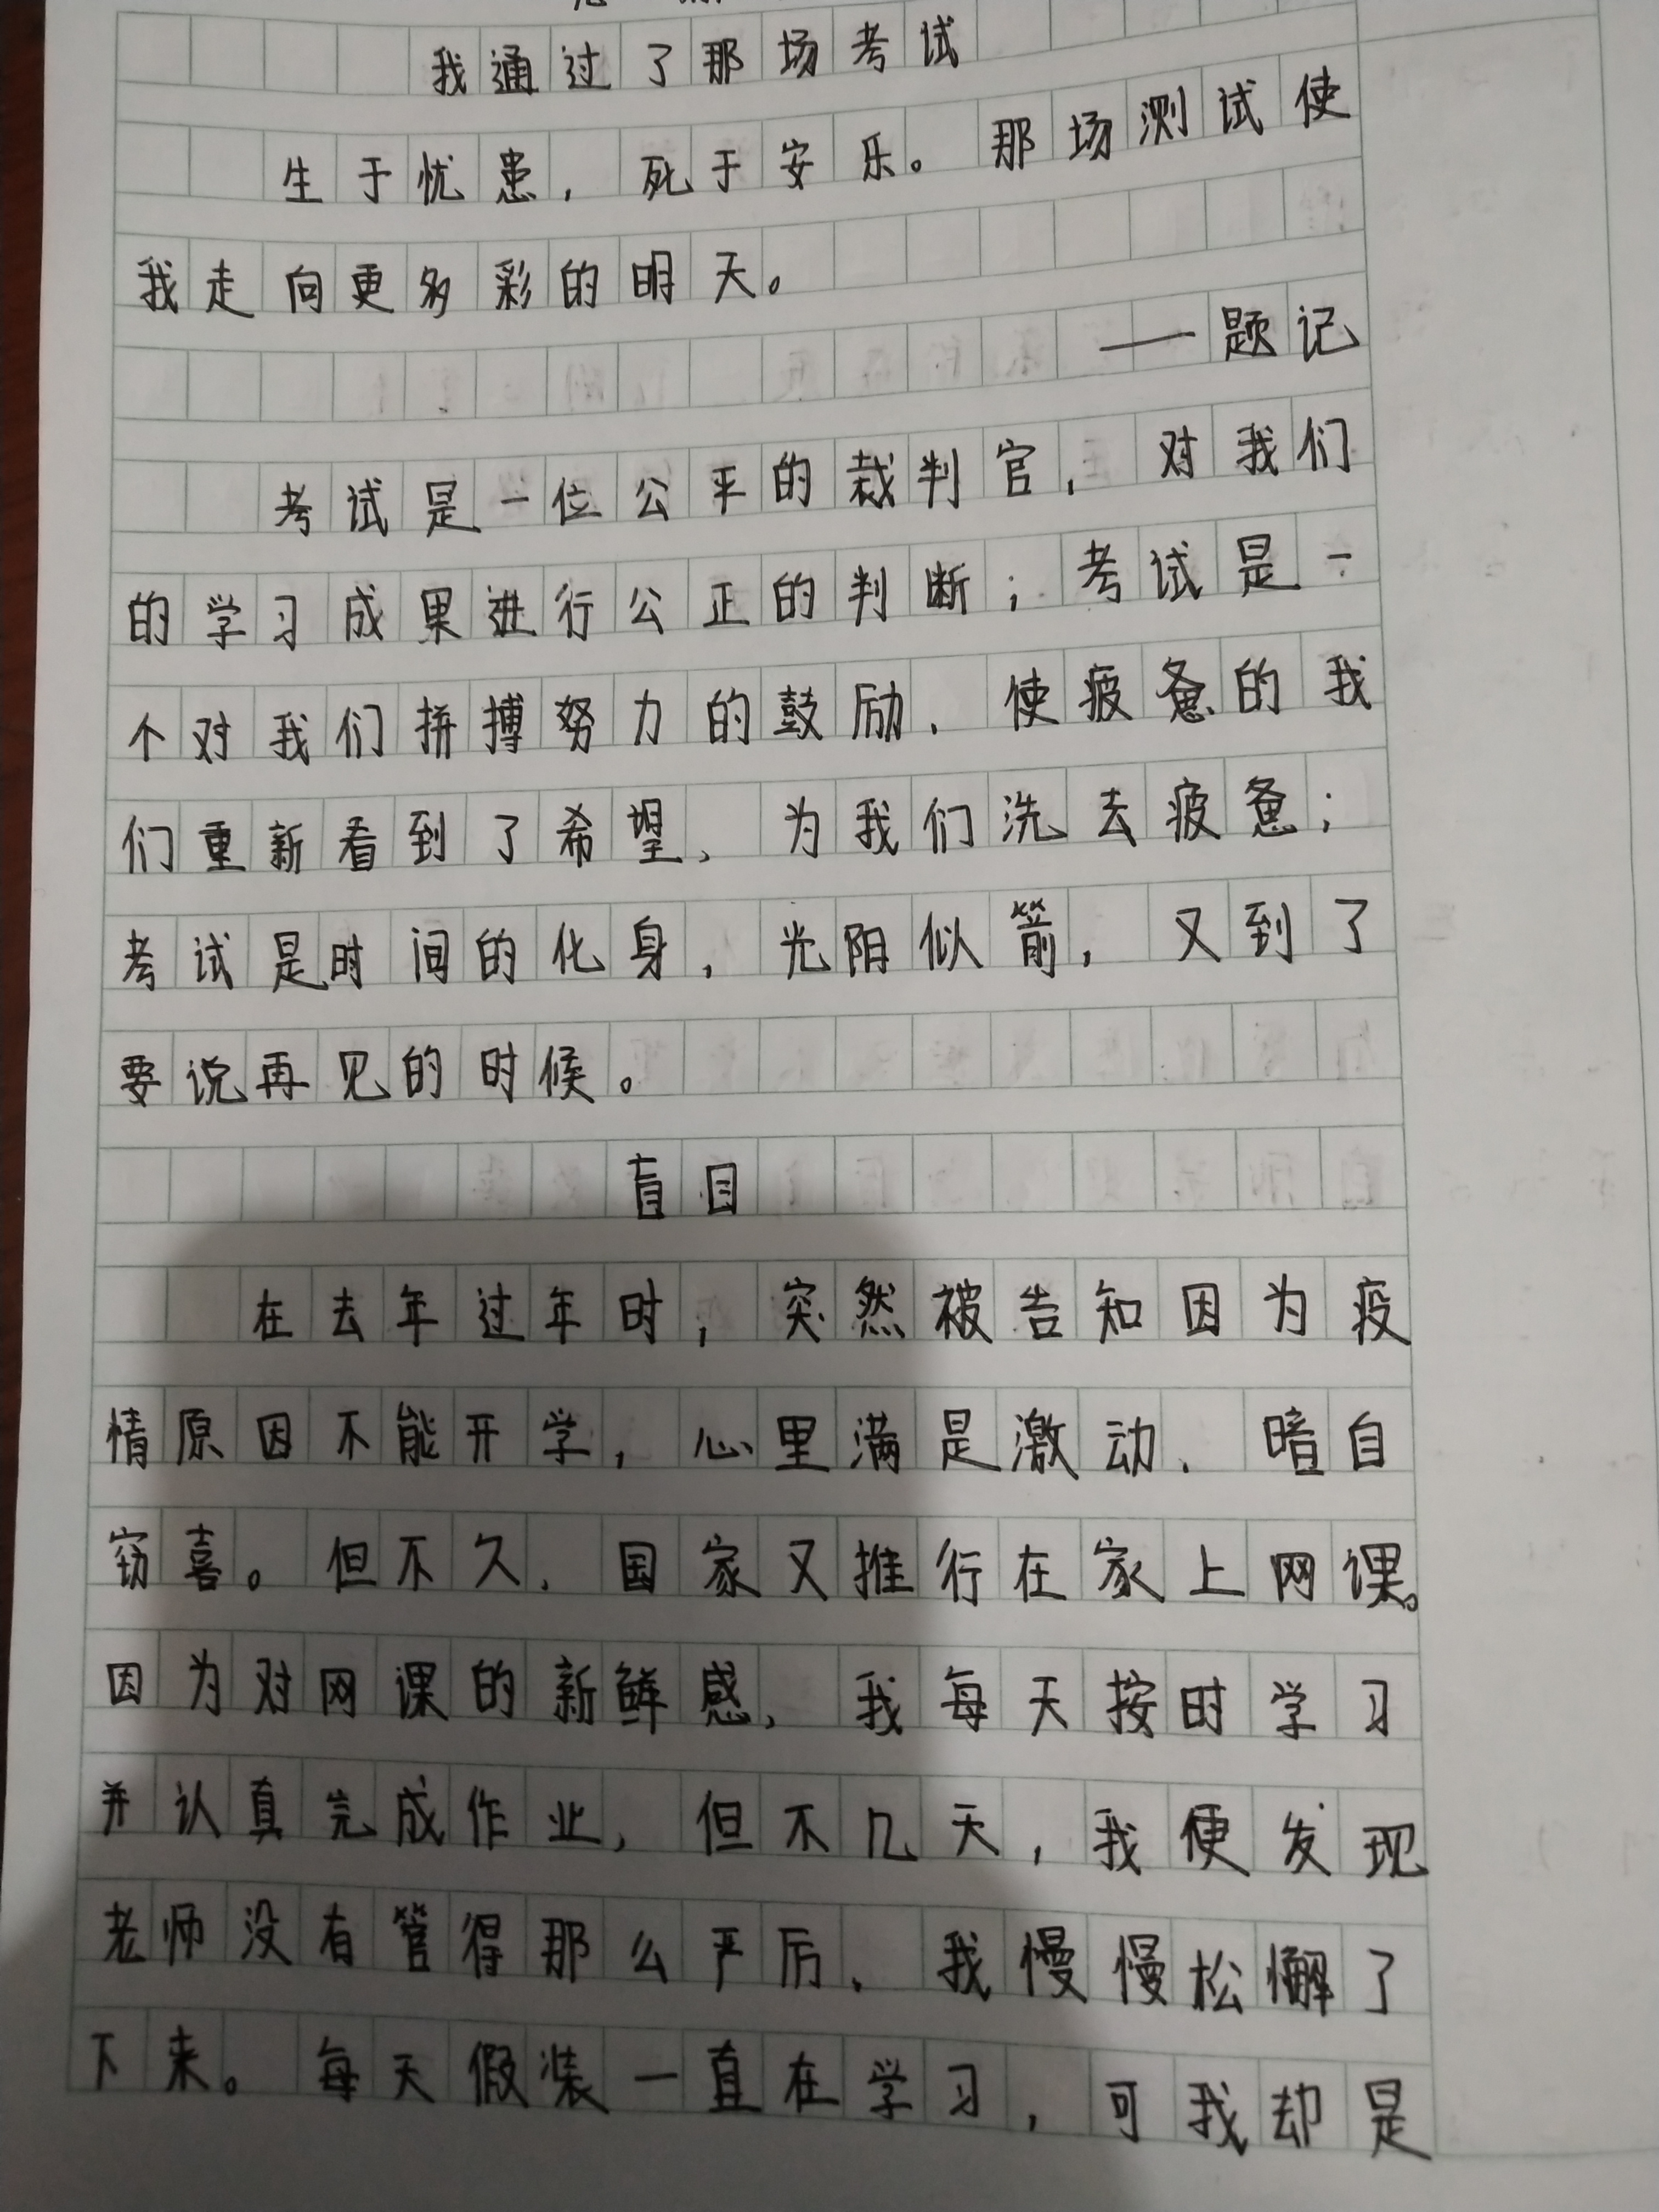 我通过了那场考试
生于忧患，死于安乐。那场测试使
我走向更多彩的明天。
——题记
考试是一位公平的裁判官，对我们
的学习成果进行公正的判断；考试是一
个对我们拼搏努力的鼓励，使疲惫的我
们重新看到了希望，为我们洗去疲惫；
考试是时间的化身，光阴似箭，又到了
要说再见的时候。
盲目
在去年过年时，突然被告知因为疫
情原因不能开学，心里满是激动，暗自
窃喜。但不久，国家又推行在家上网课。
因为对网课的新鲜感，我每天按时学习
并认真完成作业，但不几天，我便发现
老师没有管得那么严厉，我慢慢松懈了
下来。每天假装一直在学习，可我却是